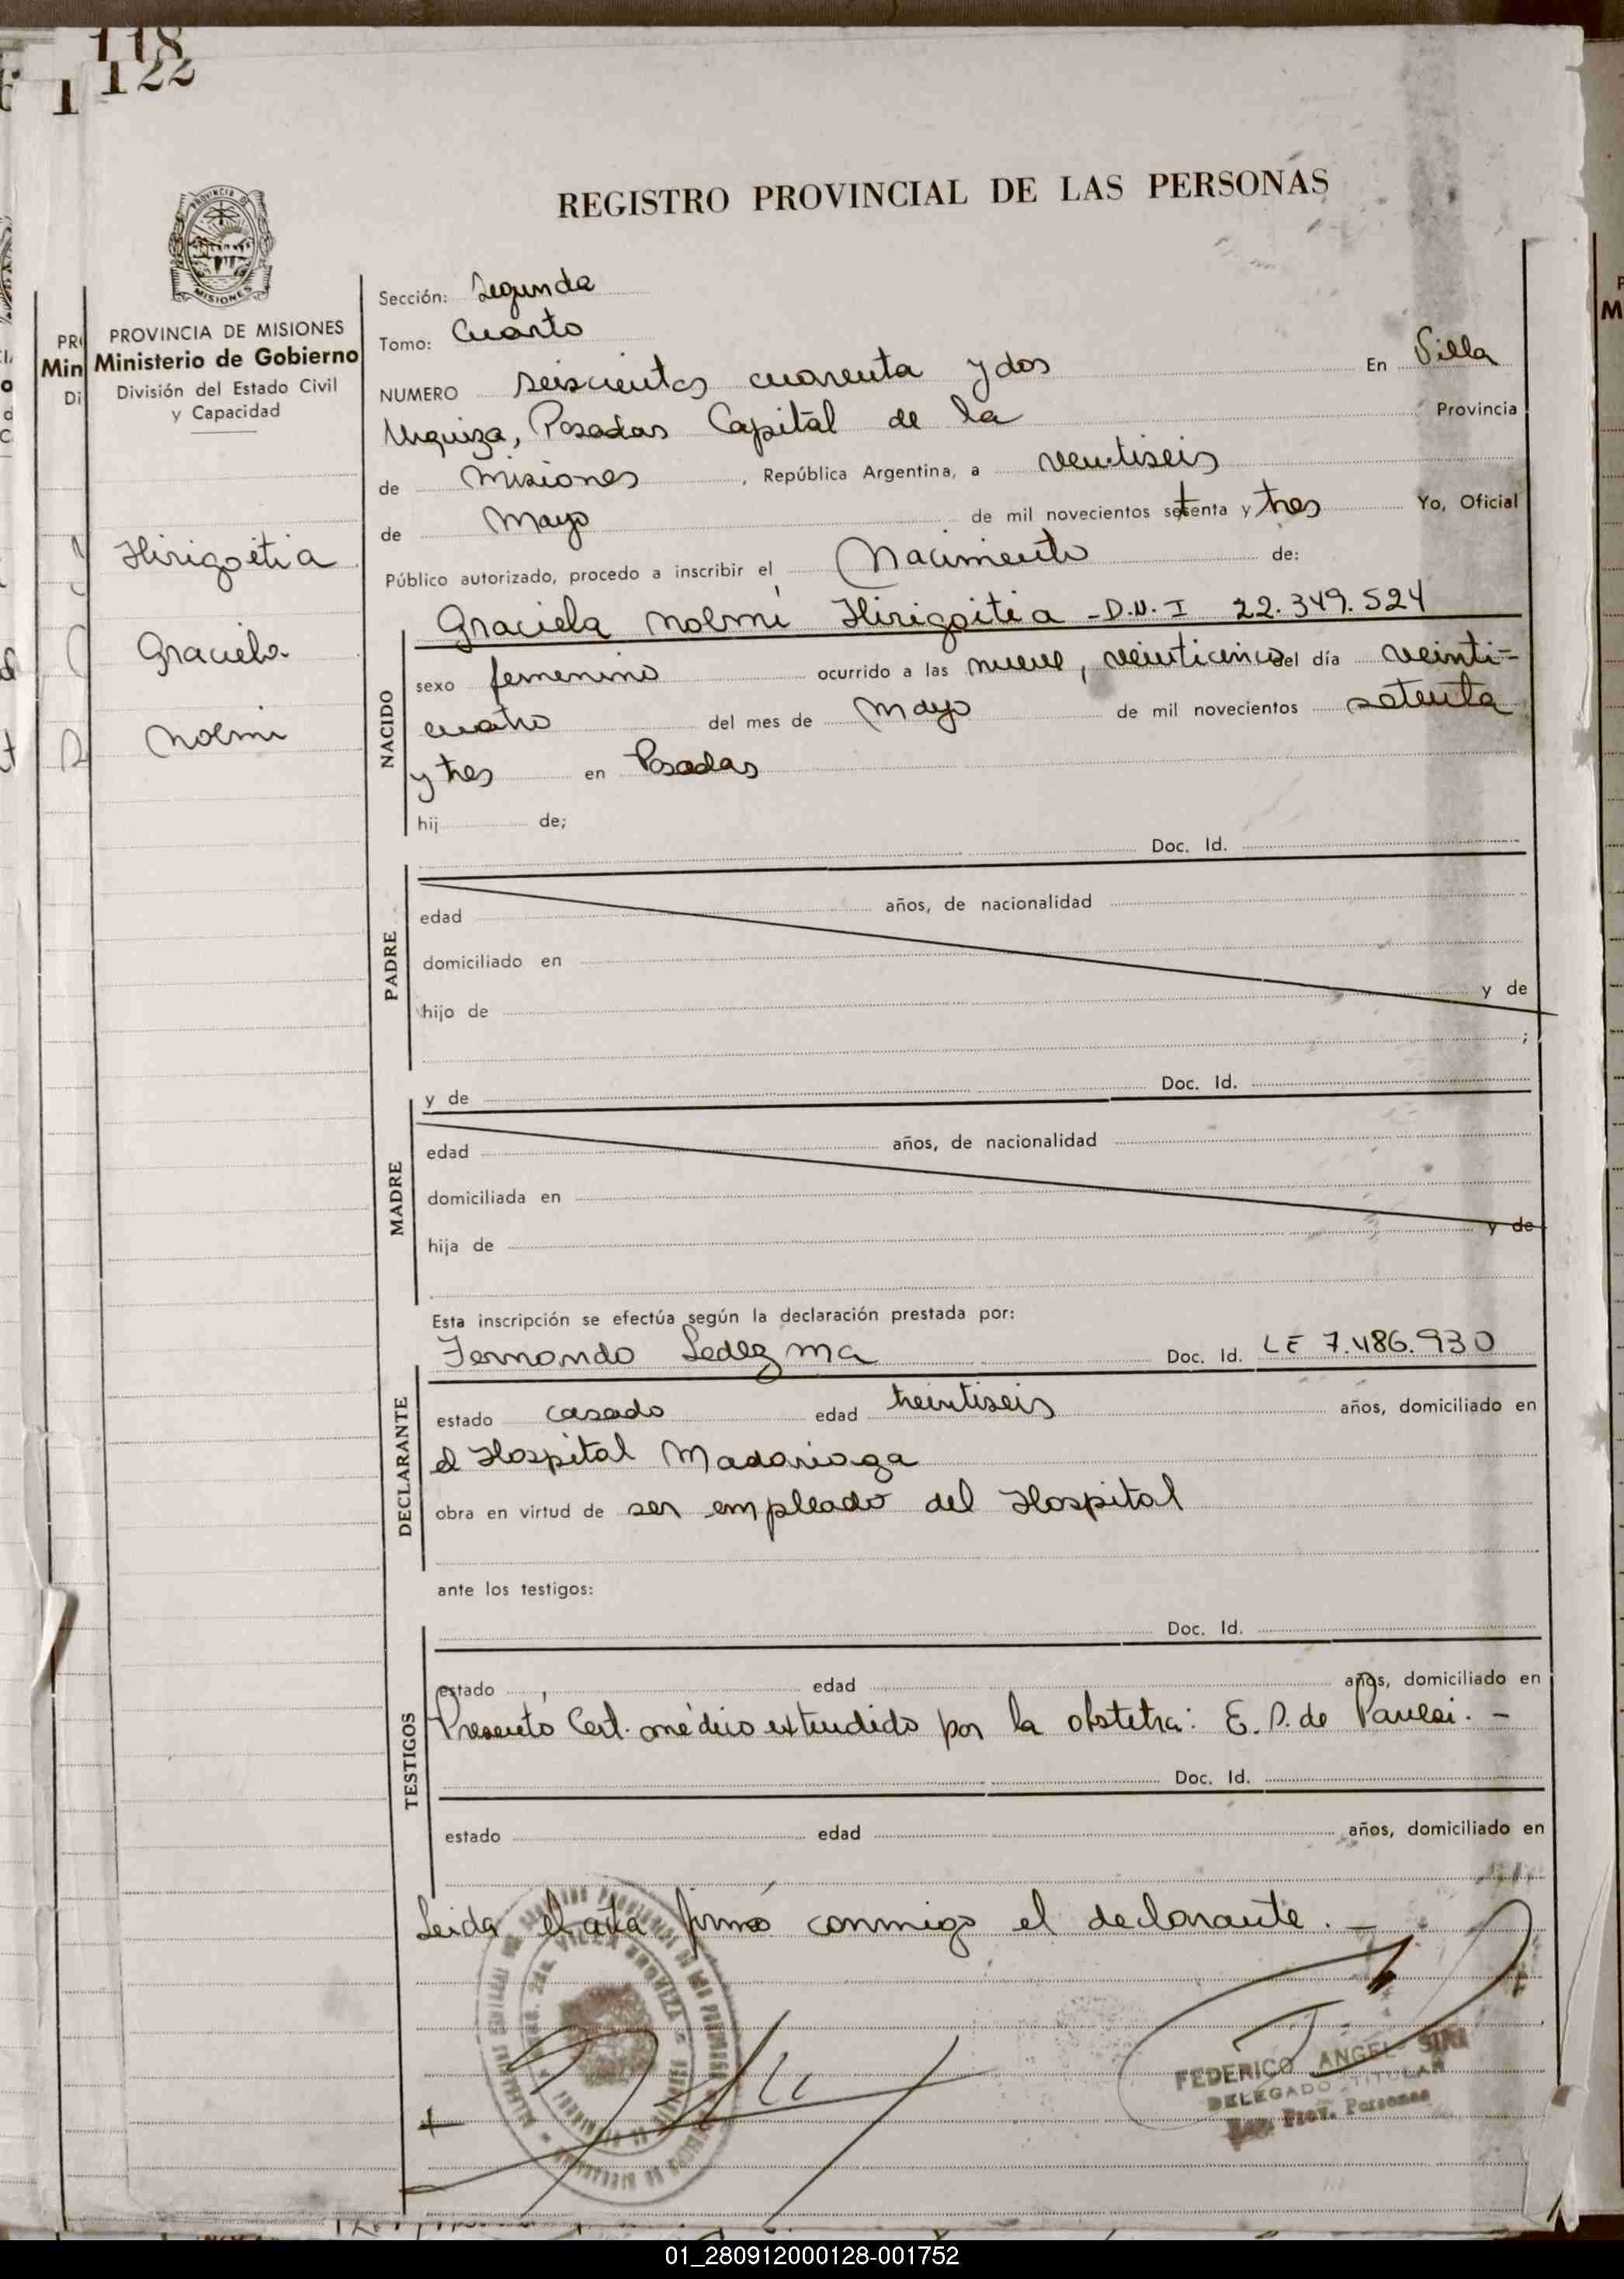 118
122
REGISTRO PROVINCIAL DE LAS PERSONAS
PROVINCIA DE MISIONES
Ministerio de Gobierno
División del Estado Civil
y Capacidad
Hirigoitia
Graciela
Noemi
Sección: Segunda
Tomo: Cuarto
NUMERO seiscientos cuarenta y dos En Villa
Urquiza, Posadas Capital de la Provincia
de Misiones, República Argentina, a veintiseis
de Mayo de mil novecientos setenta y tres Yo, Oficial
Público autorizado, procedo a inscribir el Nacimiento de:
Graciela Noemí Hirigoitia - D.N.I 22.349.524
NACIDO
sexo femenino ocurrido a las nueve, veinticinco del día veinti-
cuatro del mes de Mayo de mil novecientos setenta
y tres en Posadas
hij de;
Doc. Id.
PADRE
edad años, de nacionalidad
domiciliado en
hijo de y de
;
y de Doc. Id.
MADRE
edad años, de nacionalidad
domiciliada en
hija de y de
Esta inscripción se efectúa según la declaración prestada por:
Fernando Ledezma Doc. Id. LE 7.486.930
DECLARANTE
estado casado edad treintiseis años, domiciliado en
el Hospital Madariaga
obra en virtud de ser empleado del Hospital
ante los testigos:
Doc. Id.
TESTIGOS
estado edad años, domiciliado en
Presentó Cert. médico extendido por la obstetra: E. D. de
Doc. Id.
estado edad años, domiciliado en
Leida el acta firmó conmigo el declarante. -
VILLA URQUIZA
FEDERICO ANGEL SIRI
DELEGADO TITULAR
Reg. Prov. Personas
01_280912000128-001752